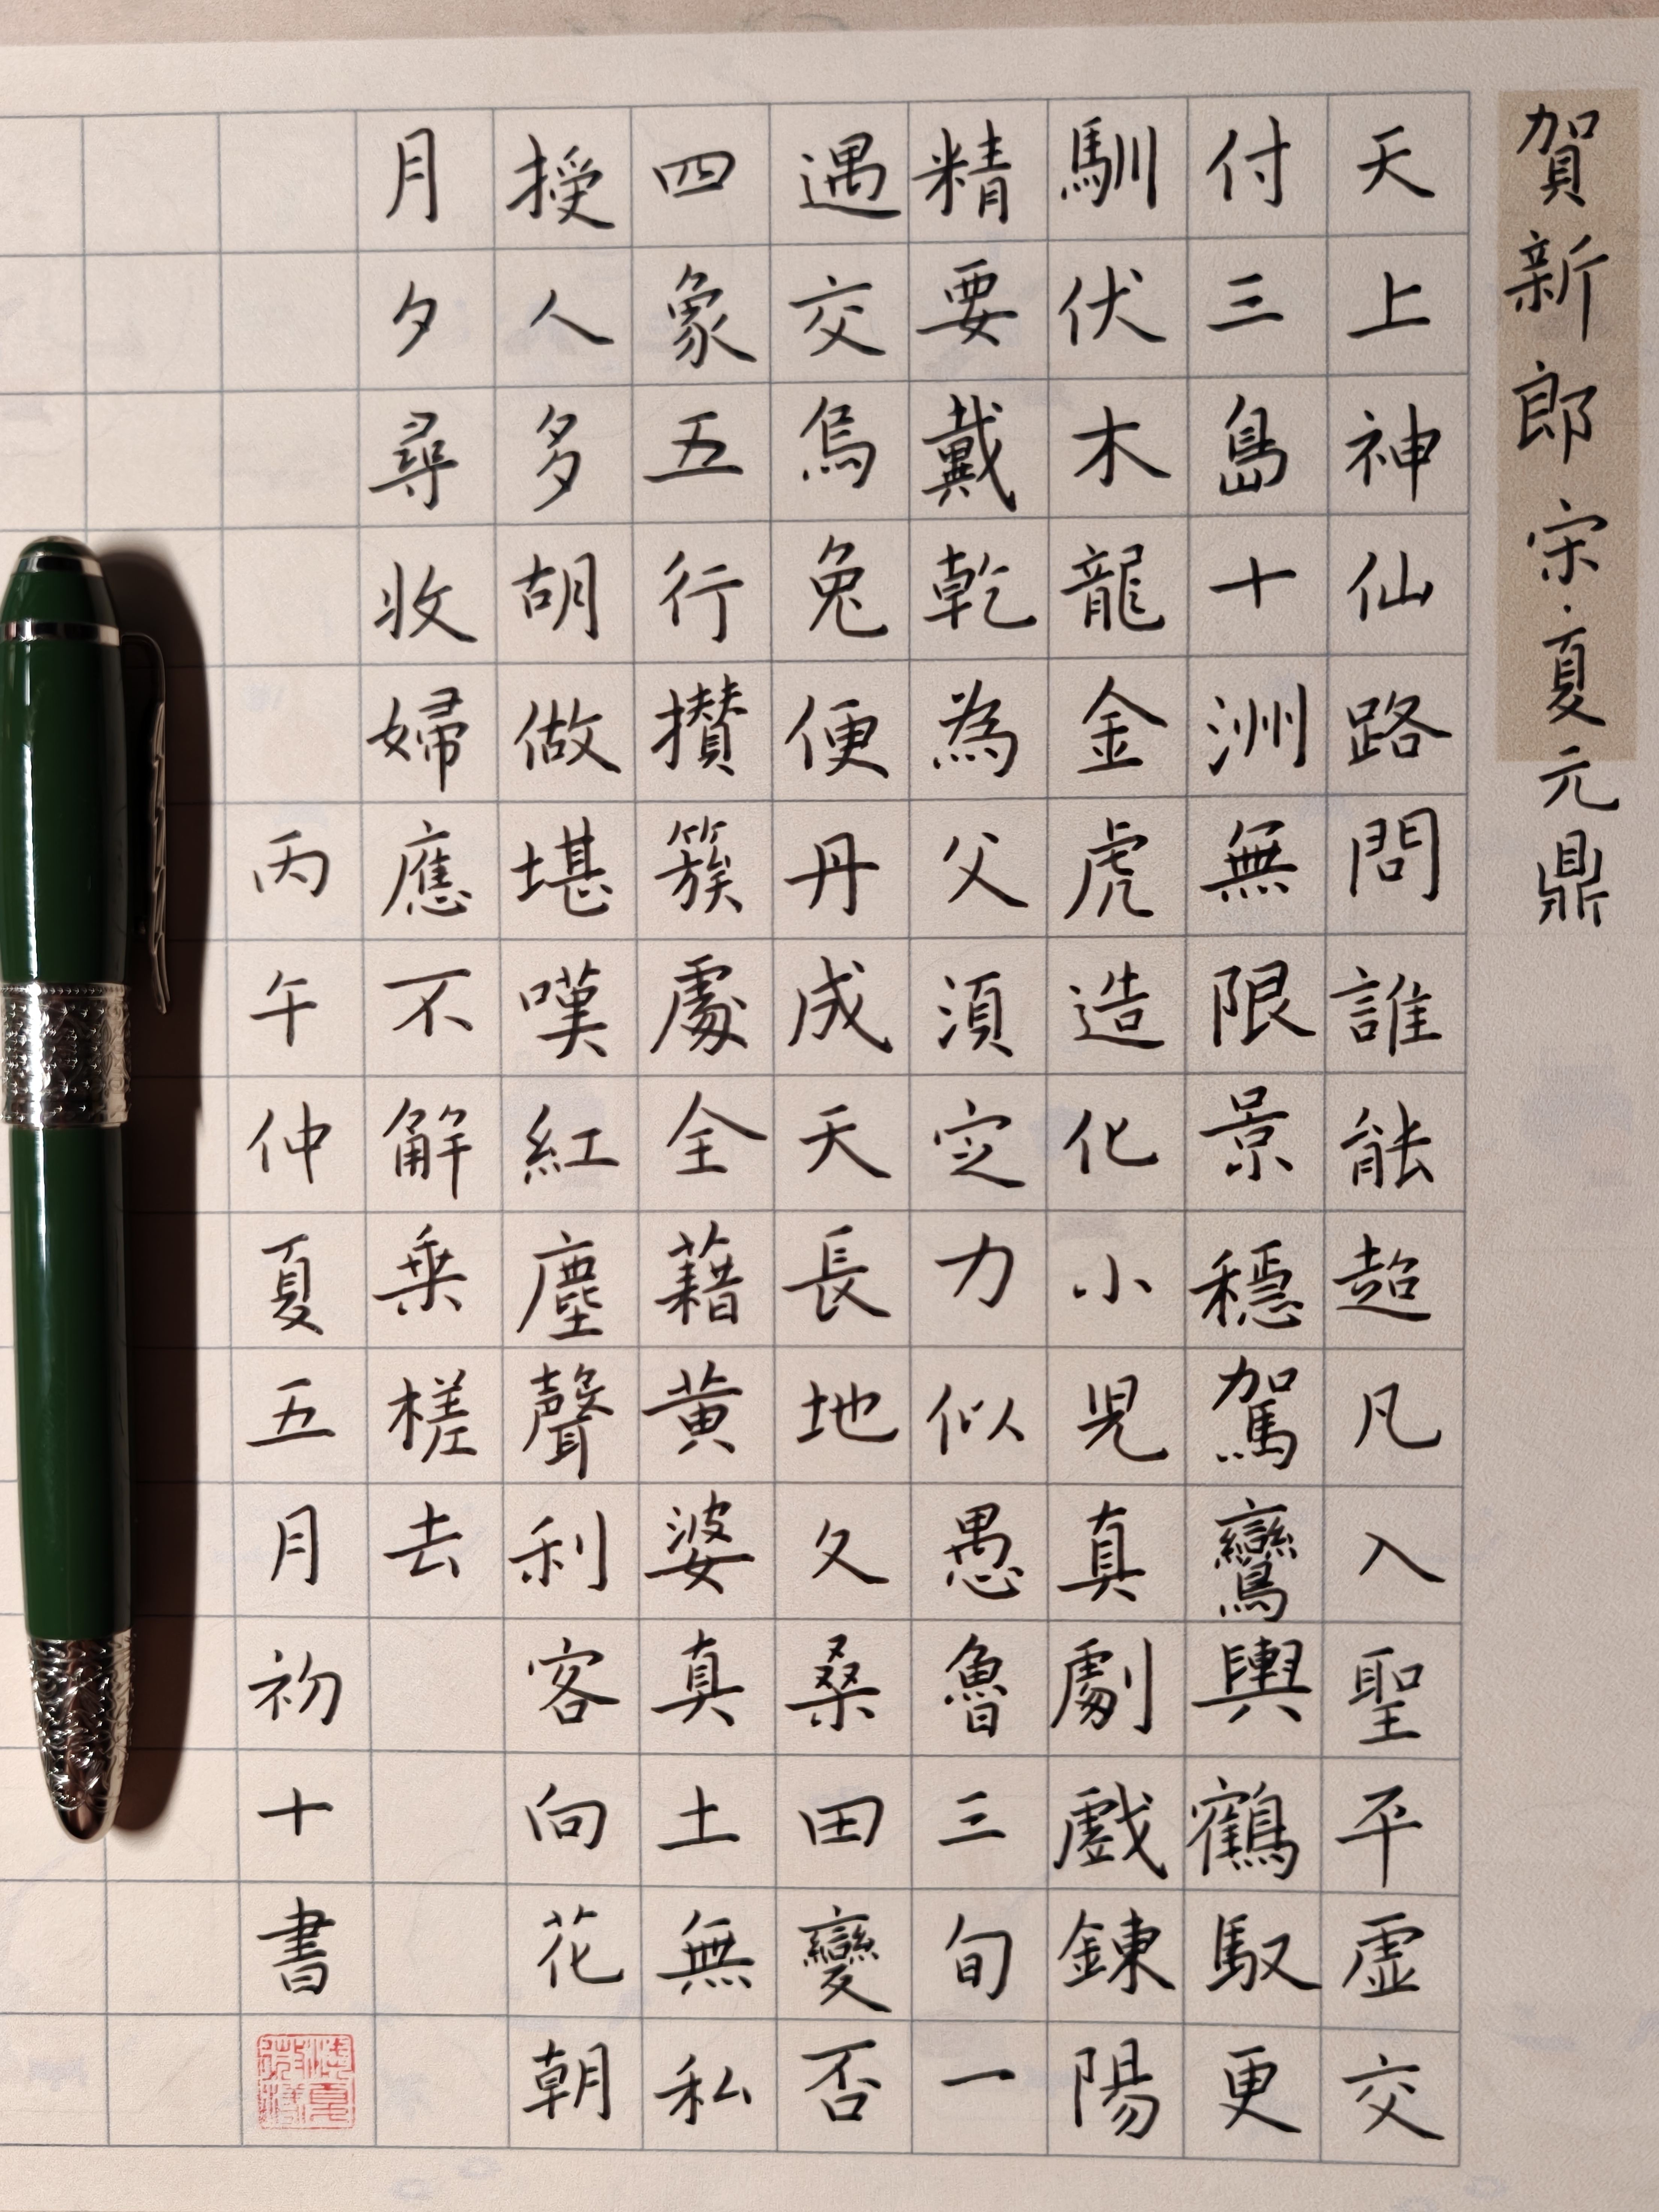 賀新郎 宋·夏元鼎
天上神仙路問誰能超凡入聖平虛交
付三島十洲無限景穩駕鸞輿鶴馭更
馴伏木龍金虎造化小兒真劇戲鍊陽
精要戴乾為父須定力似愚魯三旬一
遇交烏兔便丹成天長地久桑田變否
四象五行攅簇處全藉黃婆真土無私
授人多胡做堪嘆紅塵聲利客向花朝
月夕尋收婦應不解乘槎去
丙午仲夏五月初十書